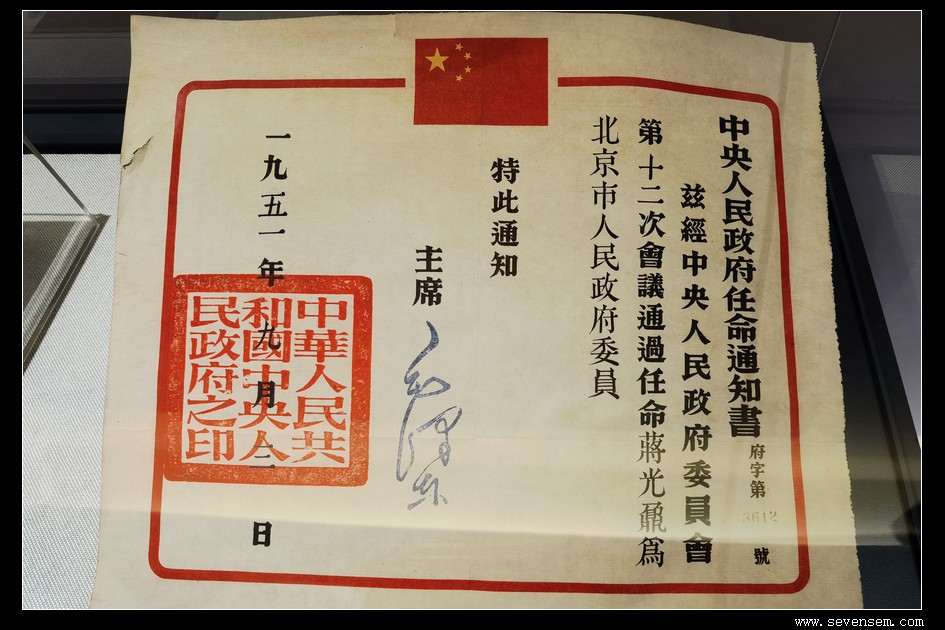 中央人民政府任命通知書
府字第3612號
兹經中央人民政府委員會
第十二次會議通過任命蔣光鼐爲
北京市人民政府委員
特此通知
主席
毛澤東
一九五一年九月三日
中華人民共
和國中央人
民政府之印
www.sevensem.com